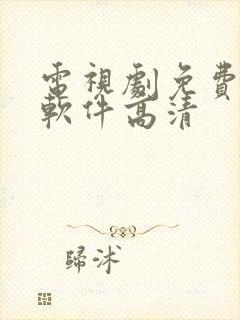 電視劇免費
軟件高清
歸沭